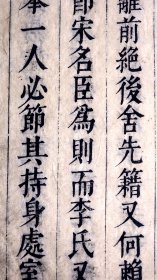 前絶後舍先籍又何賴
宋名臣爲則而李氏又
一人必節其持身處室